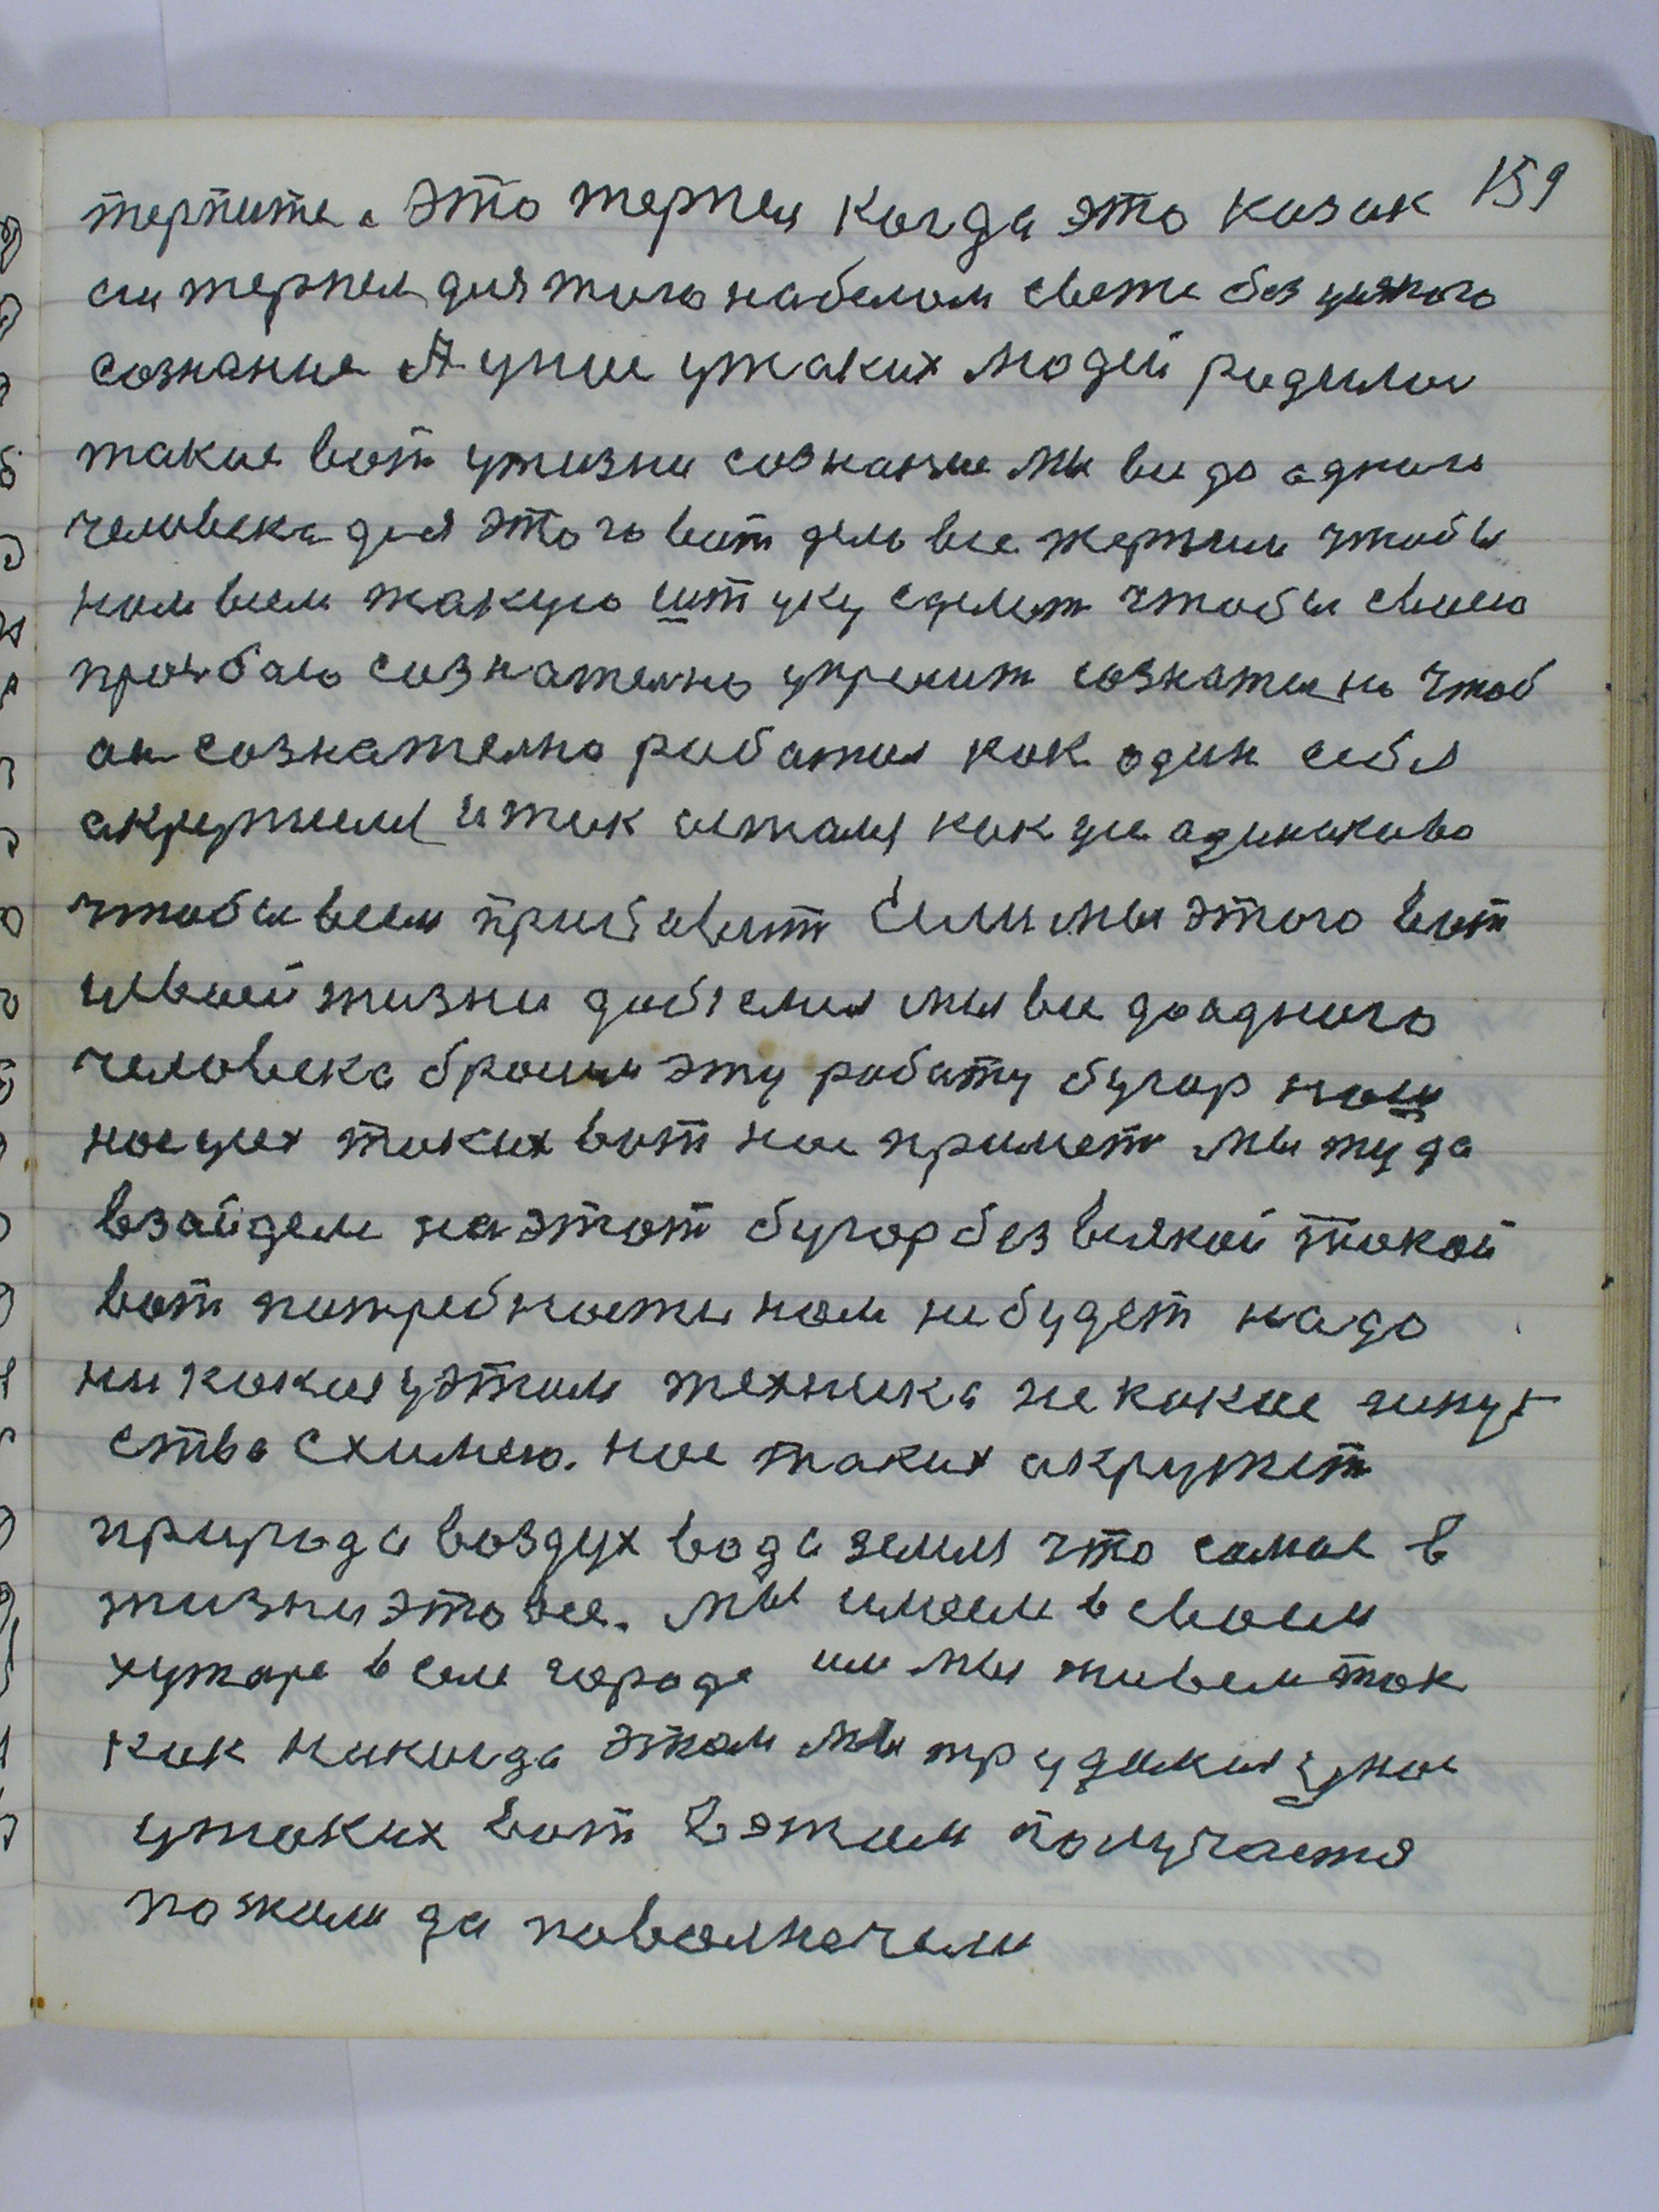 159
терпите. Это терпел когда это казак
он терпел для того на белом свете без усякого
сознание А уние утаких людей радилос
такие вот ужизни сознание мы вси до адного
человека для этого вот дела все терпим чтобы
нам всем такую штуку сделат чтобы своею
прозбаю сознателно упрасит сознателно чтоб
он сознателно работал как один себя
акружил и так астался как усе адинаково
чтобы всем прибавит Если мы этого вот
усваей жизни добемся мы все доадного
человека бросим эту работу бугор наш
нас усех таких вот нас примет мы туда
взайдем на этот бугор без всякой такой
вот патребности нам небудет надо
ни какия уэтим техника не какое
ства схимею. нас таких акружит
природа воздух вода земля что самае в
жизни это все. Мы имеем в своем
хуторе в селе городе мы живем так
как никогда этом мы трудимся унас
утаких вот в этом получается